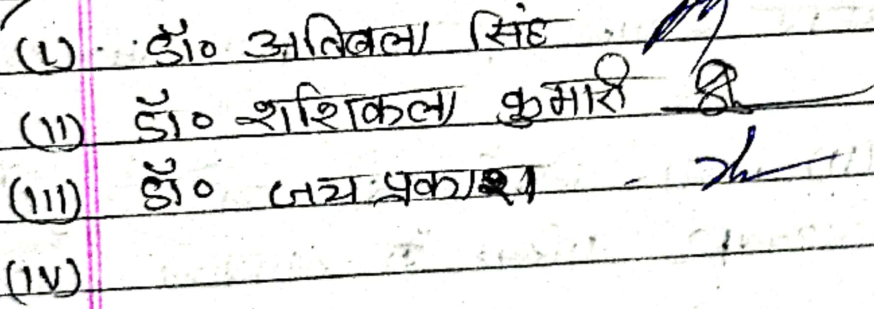 (I) डॉ० अतिबला सिंह
(II) डॉ० शशिकला कुमारी
(III) डॉ० जय प्रकाश -
(IV)